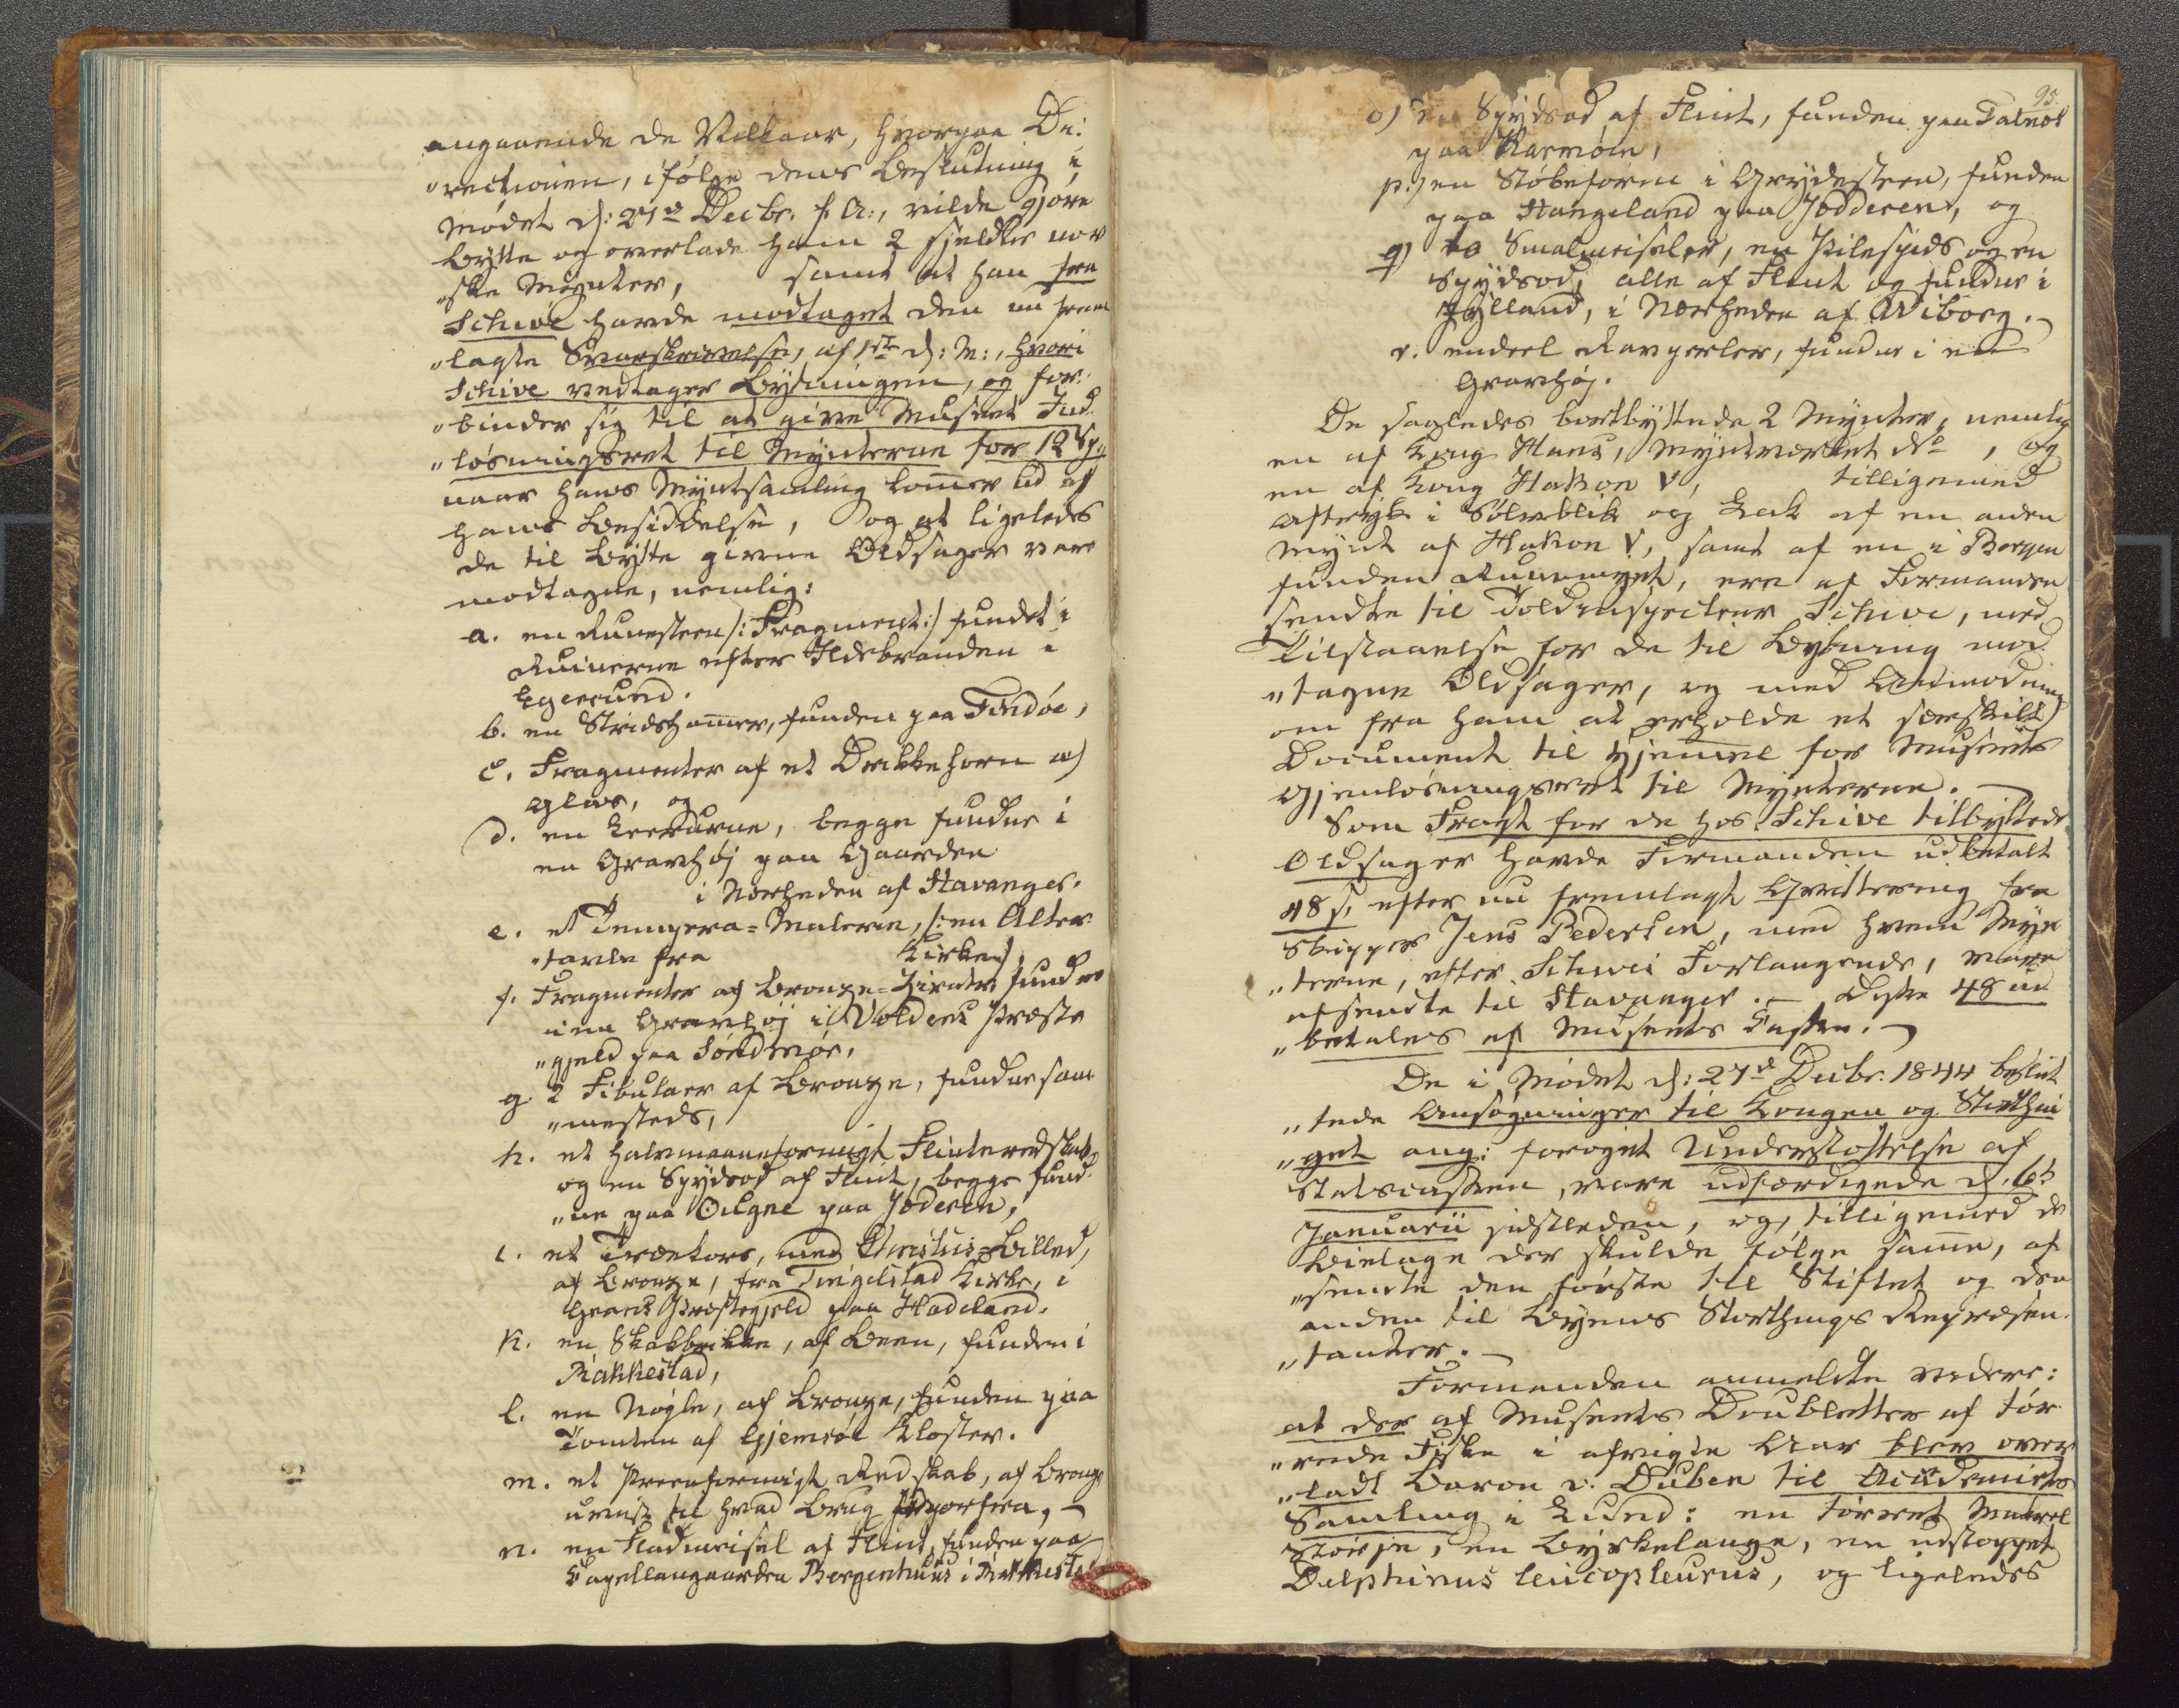 angaaende de Villkaar, hvorpaa Di-
"rectionen, ifølge dens Beslutning i
Mødet d: 27de Decbr. f. A:, vilde gjøre
Bytte og overlade ham 2 sjeldne nor
"ske Mynter, samt at han fra
Schive havde modtaget den nu frem
"lagte Svarskrivelse, af 1ste d: M:, hvori
Schive vedtager Bytningen, og for-
"binder sig til at give Museet Ind
"løsningsret til Mynterne for 12 Sp.
naar hans Myntsamling kommer ud af
hans Besiddelse, og at ligeledes
de til Bytte givne Oldsager vare
modtagne, nemlig:
a. en Runesteen /: Fragment :/ fundet i
Ruinerne efter Ildebranden i
Egersund.
b. en Stridshammer, funden paa Findøe,
c. Fragmenter af et Drikkehorn af
Glas, og
d. en Leerurne, begge fundne i
en Gravhøj paa Gaarden
i Nærheden af Stavanger.
e. et Tempera-Malerie, /: en Alter
"tavle fra Kirke :/,
f. Fragmenter af Bronze-Zirater fundne
i en Gravhøj i Voldens Præste
"gjeld paa Søndmør,
g. 2 Fibulaer af Bronze, fundne sam
"mesteds,
h. et halvmaaneformigt Flinteredskab,
og en Spydsod af Flint, begge fund
"ne paa Øugne paa Jederen,
i. et Trækors, med Christus-Billed,
af Bronze, fra Tingelstad Kirke, i
Grans Præstegjeld paa Hadeland.
k. en Skakbrikke, af Been, funden i
Rakkestad,
l. en Nøgle, af Bronze, funden paa
Tomten af Gjemsøe Kloster.
m. et Preenformigt Redskab, af Bronze
uvist til hvad Brug hvorfra,
n. en Fladmeisel af Flint, funden paa
Capellangaarden Bergenhuus i Rakkestad
95.
o) en Spydsod af Flint, funden paa Falnes
paa Karmøen,
p.) en Støbeform i Grydesteen, funden
paa Stangeland paa Jødderen, og
q) to Smalmeisler, en Pilespids og en
Spydsod, alle af Flint og fundne i
Jylland, i Nærheden af Wiborg.
r. endeel Ravperler, fundne i en
Gravhøj.
De saaledes bortbyttede 2 Mynter, nemlig
en af Kong Hans, Myntmærket No , og
en af Kong Hakon V, tilligemed
Aftryk i Sølvblik og Lak af en anden
Mynt af Hakon V, samt af en i Bergen
funden Runemynt, ere af Formanden
sendte til Toldinspecteur Schive, med
Tilstaaelse for de til Bytning mod-
"tagne Oldsager, og med Anmodning
om fra ham at erholde et særskilt
Document til Hjemmel for Museets
Gjenløsningsret til Mynterne.
Som Fragt for de hos Schive tilbyttede
Oldsager havde Formanden udbetalt
48 s, efter nu fremlagt Qvittering fra
Skipper Jens Pedersen, med hvem Myn
"terne, efter Schives Forlangende, vare
afsendte til Stavanger. Disse 48 ud
"betales af Museets Casse.
De i Mødet d: 27de Decbr. 1844 beslut
"tede Ansøgninger til Kongen og Storthin
"get ang: forøget Understøttelse af
Statscassen, vare udfærdigede d. 6te
Januarii sidstleden, og, tilligemed de
Bielage der skulde følge samme, af
"sendte den første til Stiftet og den
anden til Byens Storthings Repræsen-
"tanter.
Formanden anmeldte videre:
at der af Museets Doubletter af tør
"rede Fiske i afvigte Aar blev over
"ladt Baron v. Düben til Academiets
Samling i Lund: en tørret Makrel
Størje, en Byrkelange, en udstoppet
Delphinus leucopleurus, og ligeledes